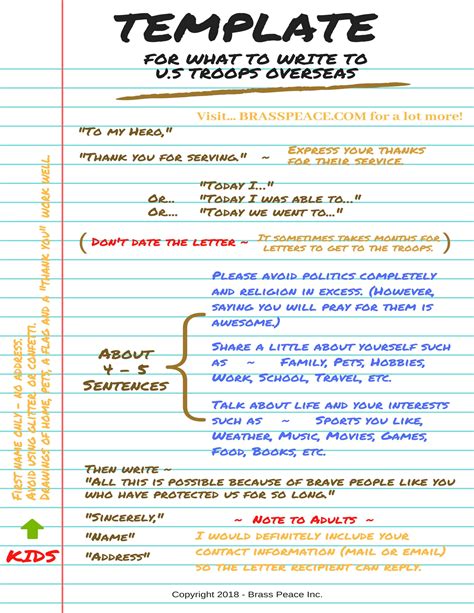 TEMPLATE
FOR WHAT TO WRITE TO
U.S TROOPS OVERSEAS
Visit... BRASSPEACE.COM for a lot more!
"To my Hero,"
"Thank you for serving." ~ Express your thanks
for their service.
"Today I..."
Or... "Today I was able to..."
Or.... "Today we went to..."
(Don't date the letter ~ It sometimes takes months for
letters to get to the troops.)
Please avoid politics completely
and religion in excess. (However,
saying you will pray for them is
awesome.)
About
4 - 5
Sentences
Share a little about yourself such
as ~ Family, Pets, Hobbies,
Work, School, Travel, etc.
Talk about life and your interests
such as ~ Sports you like,
Weather, Music, Movies, Games,
Food, Books, etc.
Then write ~
"All this is possible because of brave people like you
who have protected us for so long."
"Sincerely,"
"Name"
"Address"
~ Note to Adults ~
I would definitely include your
contact information (mail or email)
so the letter recipient can reply.
First name only - no address.
Avoid using glitter or confetti.
Drawings of home, pets, a flag and a "thank you" work well.
KIDS
Copyright 2018 - Brass Peace Inc.